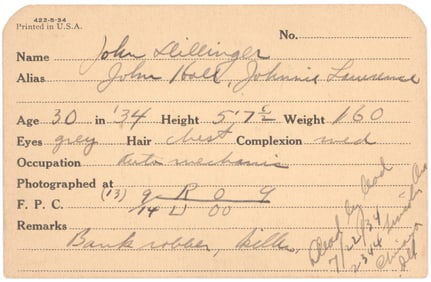 422-5-34
Printed in U.S.A.
No.
Name John Dillinger
Alias John Hall, Johnnie Lawrence
Age 30 in '34 Height 5'7 1/2 Weight 160
Eyes grey Hair chest Complexion med
Occupation Auto mechanic
Photographed at
F. P. C. (13) 9 R 0
14 U 00
Remarks
Bank robber, killer
Dead by lead
7/22/34
2344 Lincoln Av
Chicago
Ill